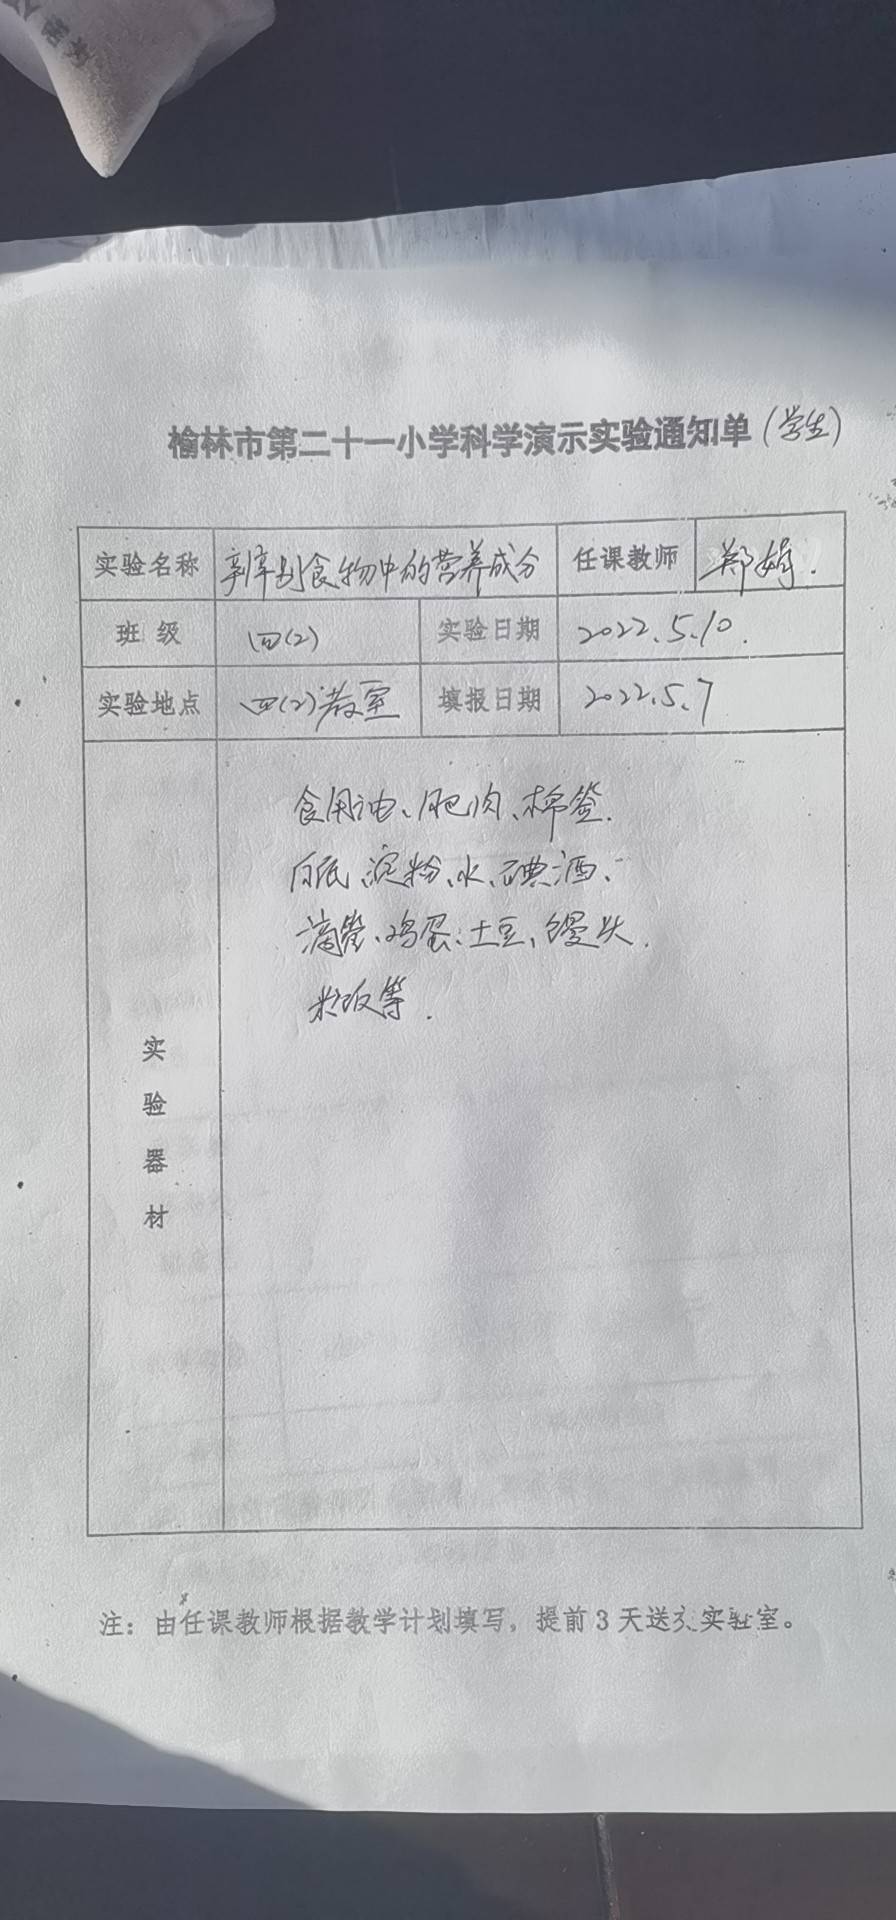 榆林市第二十一小学科学演示实验通知单(学生)
实验名称 辨别食物中的营养成分 任课教师 郑娟.
班 级 四(2) 实验日期 2022.5.10.
实验地点 四(2)教室 填报日期 2022.5.7
实验器材
食用油、肥肉、棉签.
白纸、淀粉、水、碘酒、
滴管、鸡蛋、土豆、馒头.
米饭等.
注：由任课教师根据教学计划填写，提前 3 天送交实验室。